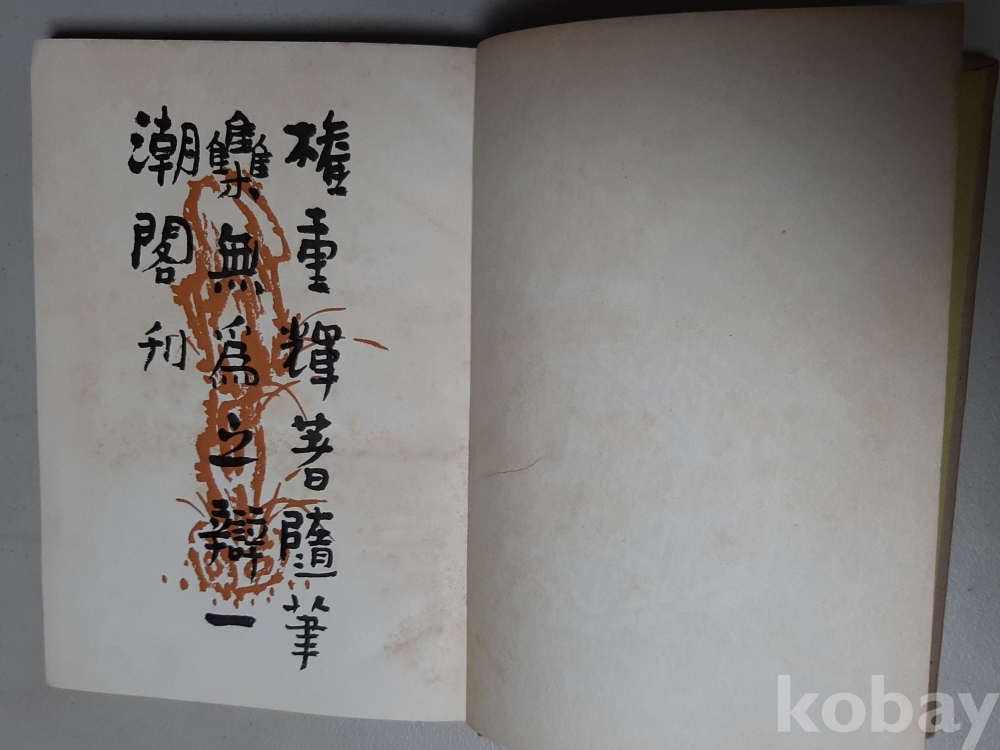 檀重輝著隨筆
雧無爲之辯一
潮閣刊
kobay